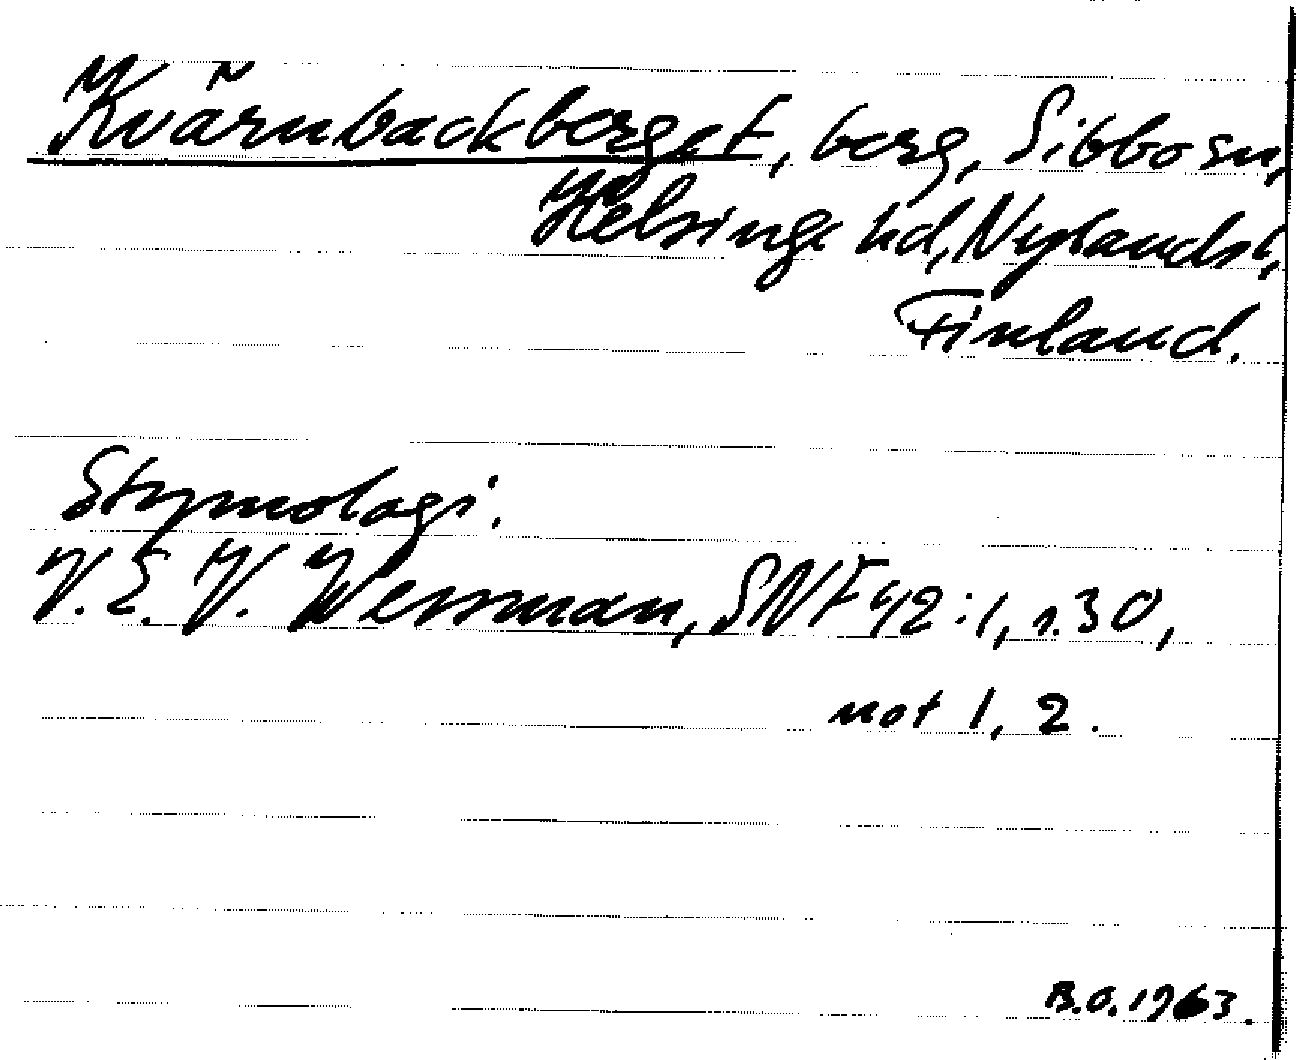 Kvärnbackberget, berg, Sibbo sn,
Helsinge hd, Nylands l,
Finland.
Etymologi.
V. E. V. Wessman, SNF 42:1, s. 30,
not 1, 2.
B.O. 1963.